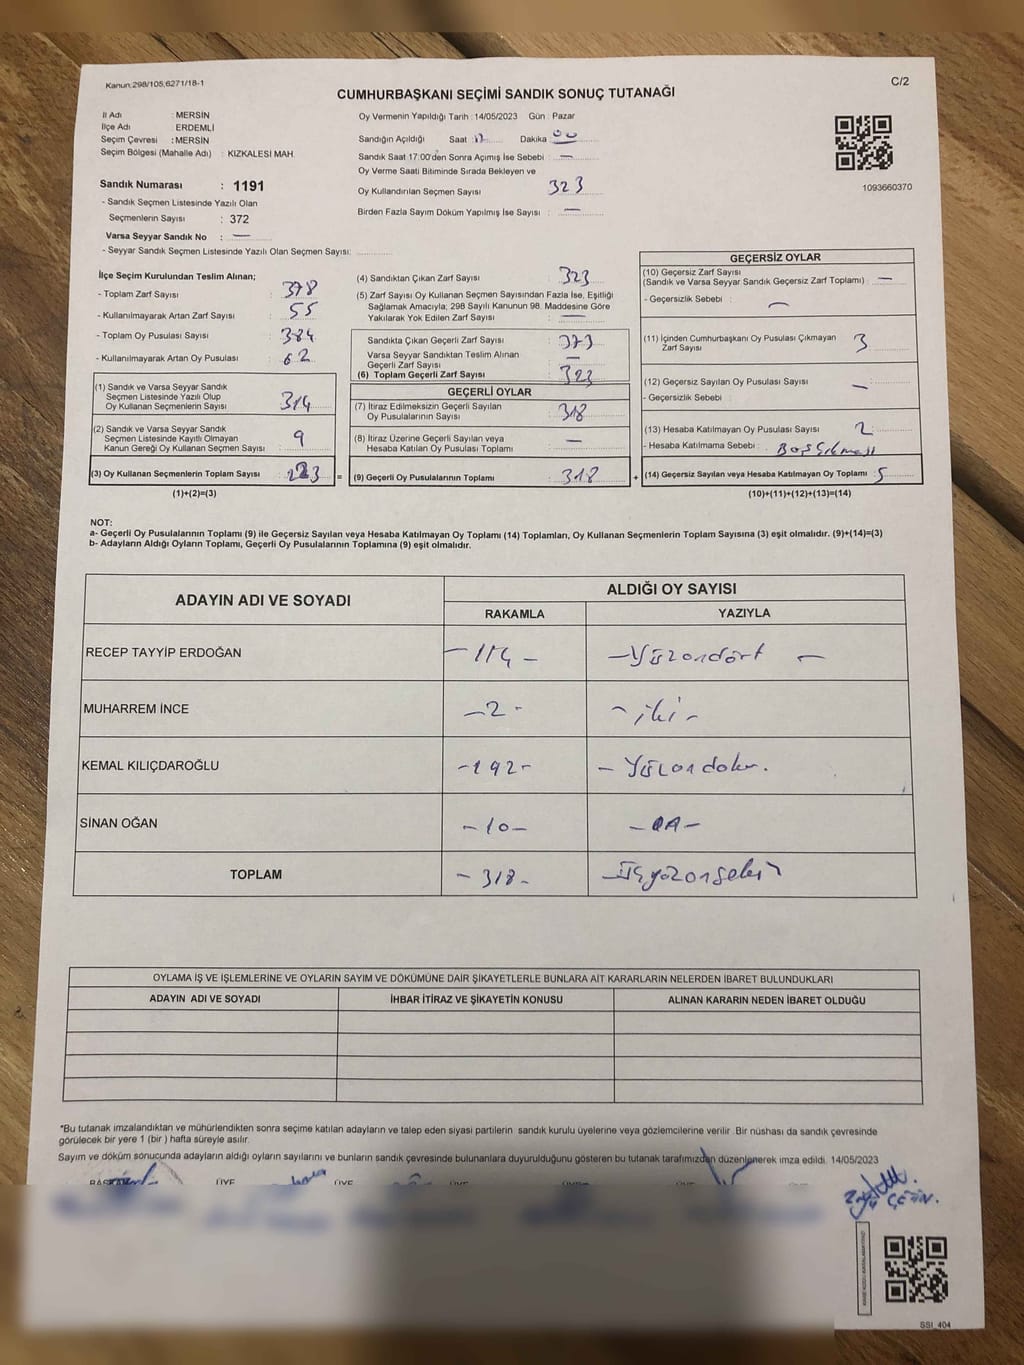 Kanun:298/105;6271/18-1
C/2
CUMHURBAŞKANI SEÇİMİ SANDIK SONUÇ TUTANAĞI
İl Adı : MERSİN
İlçe Adı : ERDEMLİ
Seçim Çevresi : MERSİN
Seçim Bölgesi (Mahalle Adı) : KIZKALESİ MAH.
Sandık Numarası : 1191
- Sandık Seçmen Listesinde Yazılı Olan
Seçmenlerin Sayısı : 372
Varsa Seyyar Sandık No : —
- Seyyar Sandık Seçmen Listesinde Yazılı Olan Seçmen Sayısı:
Oy Vermenin Yapıldığı Tarih : 14/05/2023 Gün : Pazar
Sandığın Açıldığı Saat : 17 Dakika : 00
Sandık Saat 17:00'den Sonra Açımış İse Sebebi : —
Oy Verme Saati Bitiminde Sırada Bekleyen ve
Oy Kullandırılan Seçmen Sayısı 323
Birden Fazla Sayım Döküm Yapılmış İse Sayısı : —
1093660370
İlçe Seçim Kurulundan Teslim Alınan;
- Toplam Zarf Sayısı : 378
- Kullanılmayarak Artan Zarf Sayısı : 55
- Toplam Oy Pusulası Sayısı : 384
- Kullanılmayarak Artan Oy Pusulası : 62
(1) Sandık ve Varsa Seyyar Sandık
Seçmen Listesinde Yazılı Olup
Oy Kullanan Seçmenlerin Sayısı : 314
(2) Sandık ve Varsa Seyyar Sandık
Seçmen Listesinde Kayıtlı Olmayan
Kanun Gereği Oy Kullanan Seçmen Sayısı : 9
(3) Oy Kullanan Seçmenlerin Toplam Sayısı : 323 =
(1)+(2)=(3)
(4) Sandıktan Çıkan Zarf Sayısı : 323
(5) Zarf Sayısı Oy Kullanan Seçmen Sayısından Fazla İse, Eşitliği
Sağlamak Amacıyla; 298 Sayılı Kanunun 98. Maddesine Göre
Yakılarak Yok Edilen Zarf Sayısı : —
Sandıkta Çıkan Geçerli Zarf Sayısı : 323
Varsa Seyyar Sandıktan Teslim Alınan
Geçerli Zarf Sayısı : —
(6) Toplam Geçerli Zarf Sayısı : 323
GEÇERLİ OYLAR
(7) İtiraz Edilmeksizin Geçerli Sayılan
Oy Pusulalarının Sayısı : 318
(8) İtiraz Üzerine Geçerli Sayılan veya
Hesaba Katılan Oy Pusulası Toplamı : —
(9) Geçerli Oy Pusulalarının Toplamı : 318 +
GEÇERSİZ OYLAR
(10) Geçersiz Zarf Sayısı
(Sandık ve Varsa Seyyar Sandık Geçersiz Zarf Toplamı) : —
- Geçersizlik Sebebi : —
(11) İçinden Cumhurbaşkanı Oy Pusulası Çıkmayan
Zarf Sayısı 3
(12) Geçersiz Sayılan Oy Pusulası Sayısı : —
- Geçersizlik Sebebi :
(13) Hesaba Katılmayan Oy Pusulası Sayısı : 2
- Hesaba Katılmama Sebebi : Boş Çıkması
(14) Geçersiz Sayılan veya Hesaba Katılmayan Oy Toplamı : 5
(10)+(11)+(12)+(13)=(14)
NOT:
a- Geçerli Oy Pusulalarının Toplamı (9) ile Geçersiz Sayılan veya Hesaba Katılmayan Oy Toplamı (14) Toplamları, Oy Kullanan Seçmenlerin Toplam Sayısına (3) eşit olmalıdır. (9)+(14)=(3)
b- Adayların Aldığı Oyların Toplamı, Geçerli Oy Pusulalarının Toplamına (9) eşit olmalıdır.
ADAYIN ADI VE SOYADI
ALDIĞI OY SAYISI
RAKAMLA YAZIYLA
RECEP TAYYİP ERDOĞAN -114- -Yüzondört-
MUHARREM İNCE -2- -iki-
KEMAL KILIÇDAROĞLU -192-
SİNAN OĞAN -10- -ON-
TOPLAM -318- -Üçyüzonsekiz
OYLAMA İŞ VE İŞLEMLERİNE VE OYLARIN SAYIM VE DÖKÜMÜNE DAİR ŞİKAYETLERLE BUNLARA AİT KARARLARIN NELERDEN İBARET BULUNDUKLARI
ADAYIN ADI VE SOYADI İHBAR İTİRAZ VE ŞİKAYETİN KONUSU ALINAN KARARIN NEDEN İBARET OLDUĞU
*Bu tutanak imzalandıktan ve mühürlendikten sonra seçime katılan adayların ve talep eden siyasi partilerin sandık kurulu üyelerine veya gözlemcilerine verilir. Bir nüshası da sandık çevresinde
görülecek bir yere 1 (bir ) hafta süreyle asılır.
Sayım ve döküm sonucunda adayların aldığı oyların sayılarını ve bunların sandık çevresinde bulunanlara duyurulduğunu gösteren bu tutanak tarafımızdan düzenlenerek imza edildi. 14/05/2023
BAŞKAN ÜYE ÜYE ÜYE ÜYE ÜYE
ÇETİN.
SSI_404